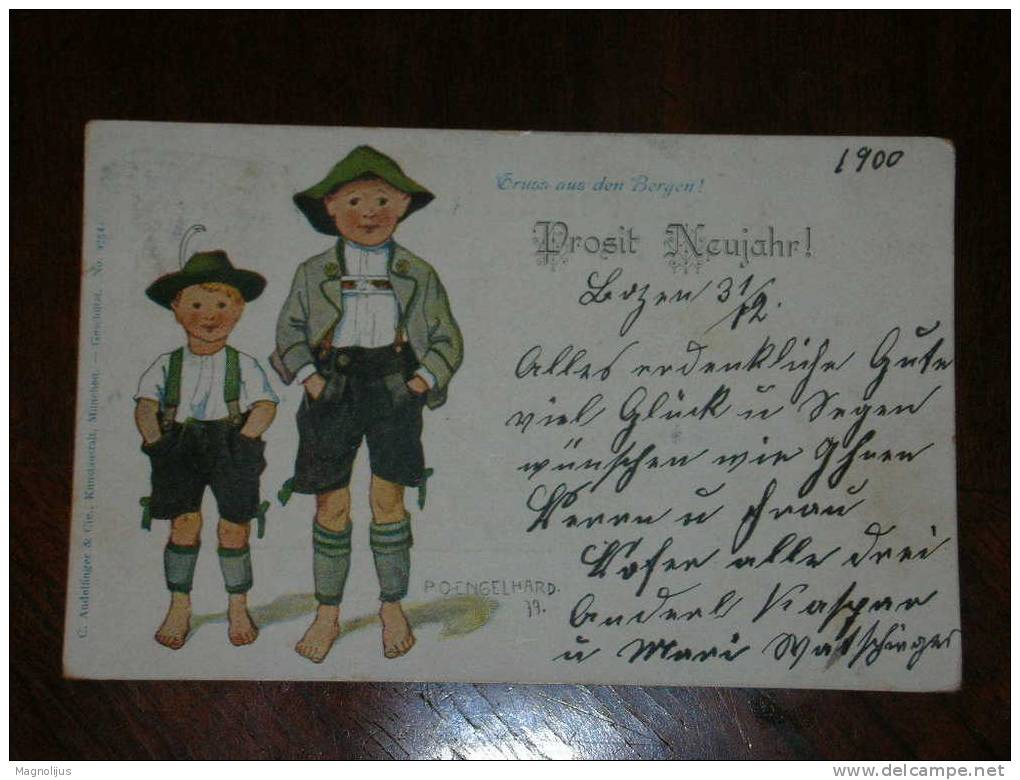 1900
Gruss aus den Bergen!
Prosit Neujahr!
Bozen 31/12.
Alles erdenkliche Gute
viel Glück u Segen
wünschen wir Ihnen
Herrn u Frau
Hofer alle drei
Anderl Kaspar
u Mari
P.O.ENGELHARD.
C. Andelfinger & Cie., Kunstanstalt, München. — Geschützt. No.
Magnolijus
delcampe.net